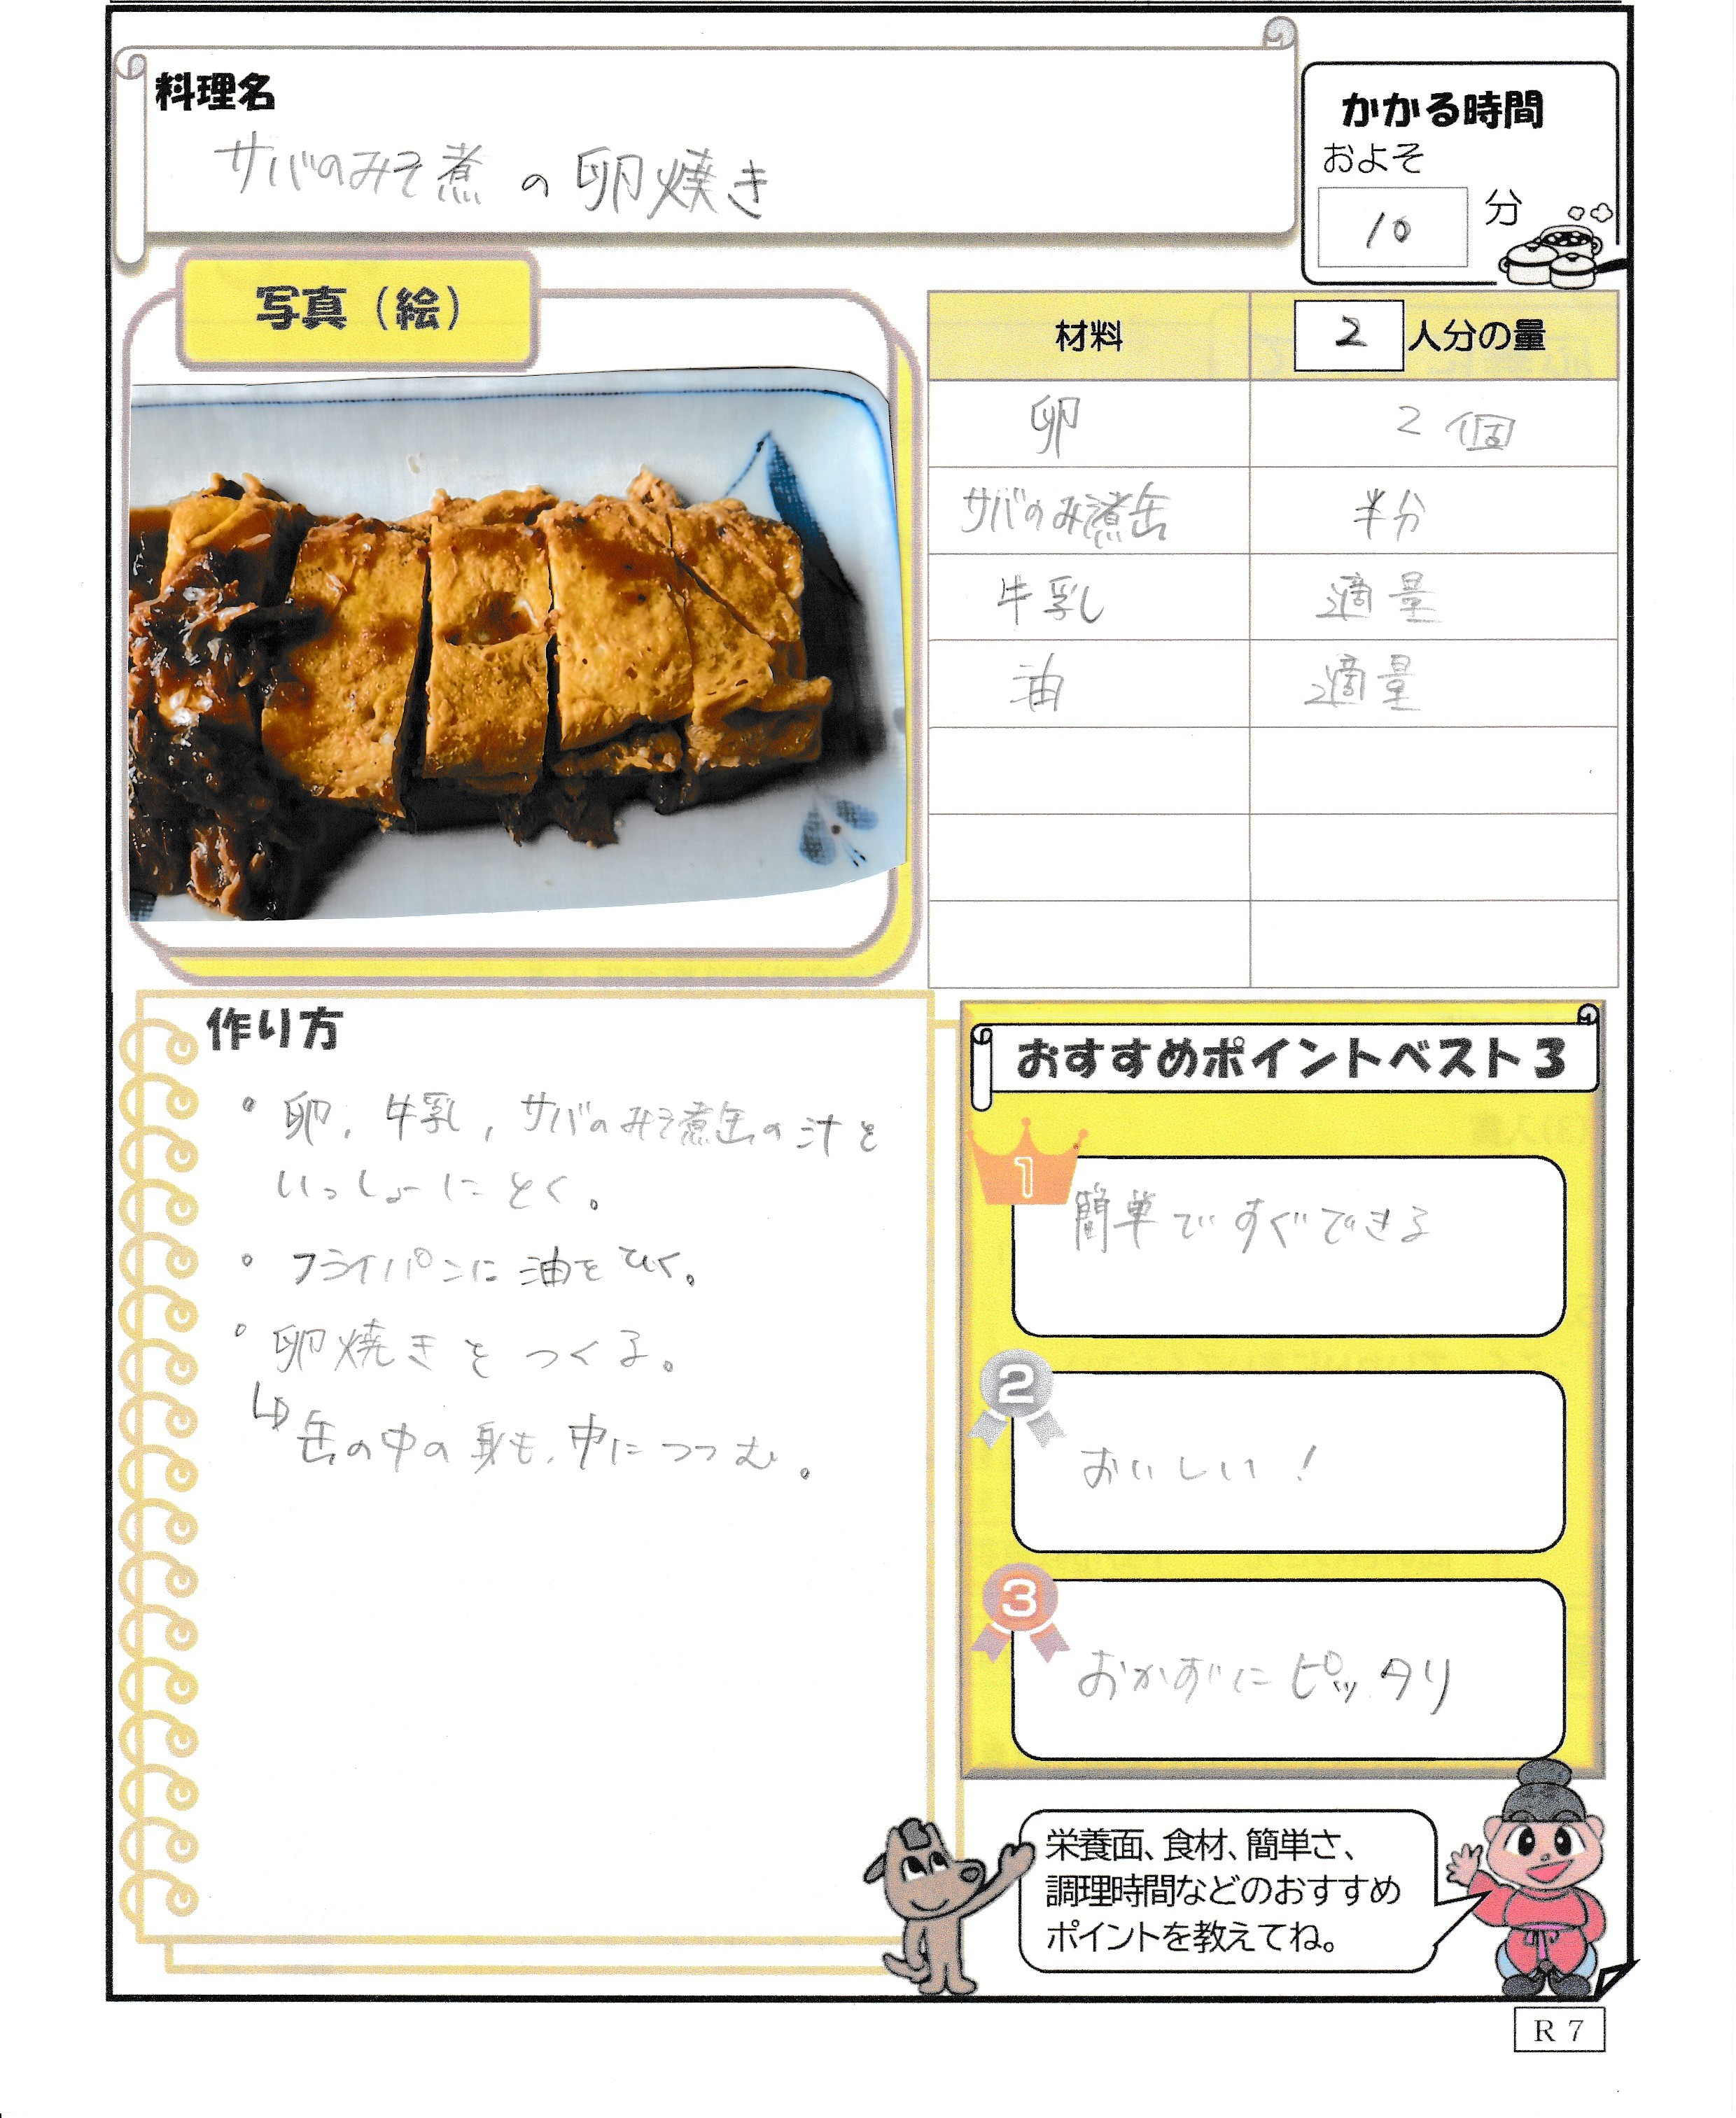 料理名
サバのみそ煮の卵焼き
かかる時間
およそ
10 分
写真（絵）
材料 2 人分の量
卵 2個
サバのみ煮缶 半分
牛乳 適量
油 適量
作り方
・卵、牛乳、サバのみそ煮缶の汁を
いっしょにとく。
・フライパンに油をひく。
・卵焼きをつくる。
↳缶の中の身も、中につつむ。
おすすめポイントベスト３
1
簡単ですぐできる
2
おいしい！
3
おかずにピッタリ
栄養面、食材、簡単さ、
調理時間などのおすすめ
ポイントを教えてね。
R 7